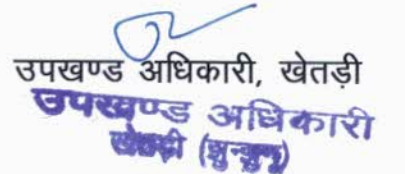 उपखण्ड अधिकारी, खेतड़ी
उपखण्ड अधिकारी
खेतड़ी (झुन्झुनू)